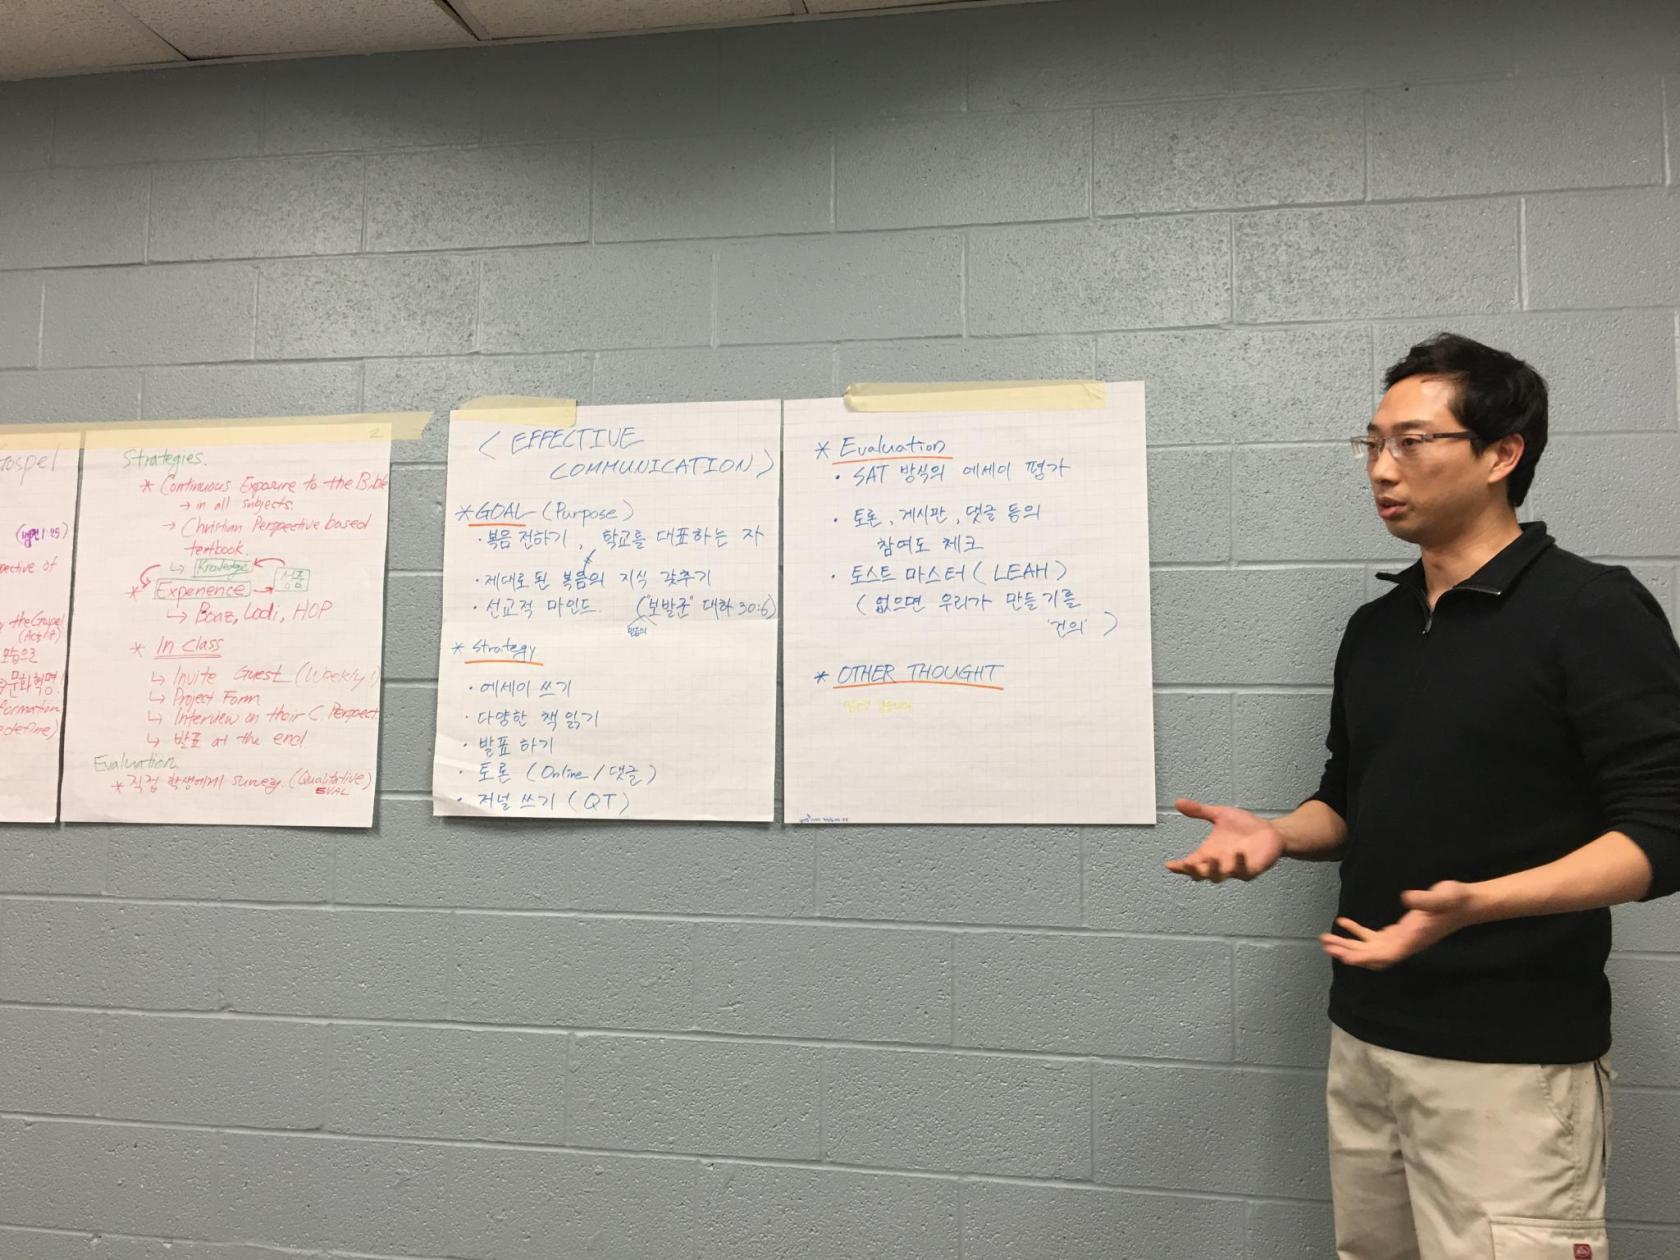 ospel
pective of
the Gospel
모습으로
문화혁명!
formation
edefine)
2
Strategies.
* Continuous Exposure to the Bible
→ in all subjects.
→ Christian Perspective based
textbook.
↳ Knowledge
* Experience
↳ Boaz, Lodi, HOP
* In class
↳ Invite Guest (Weekly!)
↳ Project Form
↳ Interview on their C. Perspect
↳ 발표 at the end
Evaluation
* 직접 학생에게 survey. (Qualitative)
EVAL
< EFFECTIVE
COMMUNICATION >
* GOAL (Purpose)
· 복음 전하기, 학교를 대표하는 자
· 제대로 된 복음의 지식 갖추기
· 선교적 마인드. ("보발꾼" 대하 30:6)
* Strategy
· 에세이 쓰기
· 다양한 책 읽기
· 발표 하기
· 토론 (Online / 댓글)
· 저널 쓰기 (QT)
* Evaluation
· SAT 방식의 에세이 평가
· 토론, 게시판, 댓글 등의
참여도 체크
· 토스트 마스터 (LEAH)
( 없으면 우리가 만들기를
'건의' )
* OTHER THOUGHT